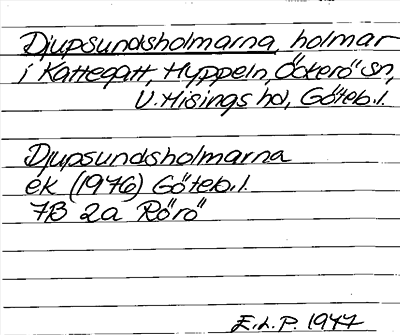 Djupsundsholmarna, holmar
i Kattegatt, Hyppeln, Öckerö sn,
V. Hisings hd, Göteb. l.
Djupsundsholmarna
ek (1976) Göteb. l.
7B 2a Rörö
E.L.P. 1977